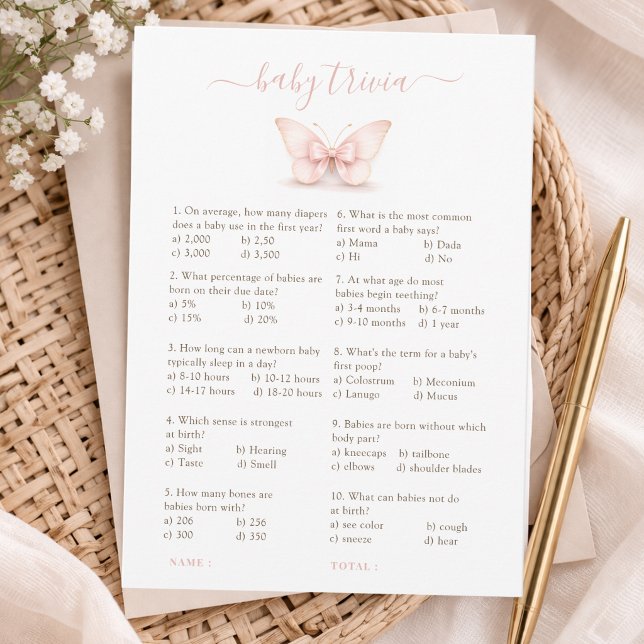 baby trivia
1. On average, how many diapers
does a baby use in the first year?
a) 2,000 b) 2,50
c) 3,000 d) 3,500
2. What percentage of babies are
born on their due date?
a) 5% b) 10%
c) 15% d) 20%
3. How long can a newborn baby
typically sleep in a day?
a) 8-10 hours b) 10-12 hours
c) 14-17 hours d) 18-20 hours
4. Which sense is strongest
at birth?
a) Sight b) Hearing
c) Taste d) Smell
5. How many bones are
babies born with?
a) 206 b) 256
c) 300 d) 350
6. What is the most common
first word a baby says?
a) Mama b) Dada
c) Hi d) No
7. At what age do most
babies begin teething?
a) 3-4 months b) 6-7 months
c) 9-10 months d) 1 year
8. What's the term for a baby's
first poop?
a) Colostrum b) Meconium
c) Lanugo d) Mucus
9. Babies are born without which
body part?
a) kneecaps b) tailbone
c) elbows d) shoulder blades
10. What can babies not do
at birth?
a) see color b) cough
c) sneeze d) hear
NAME :
TOTAL :